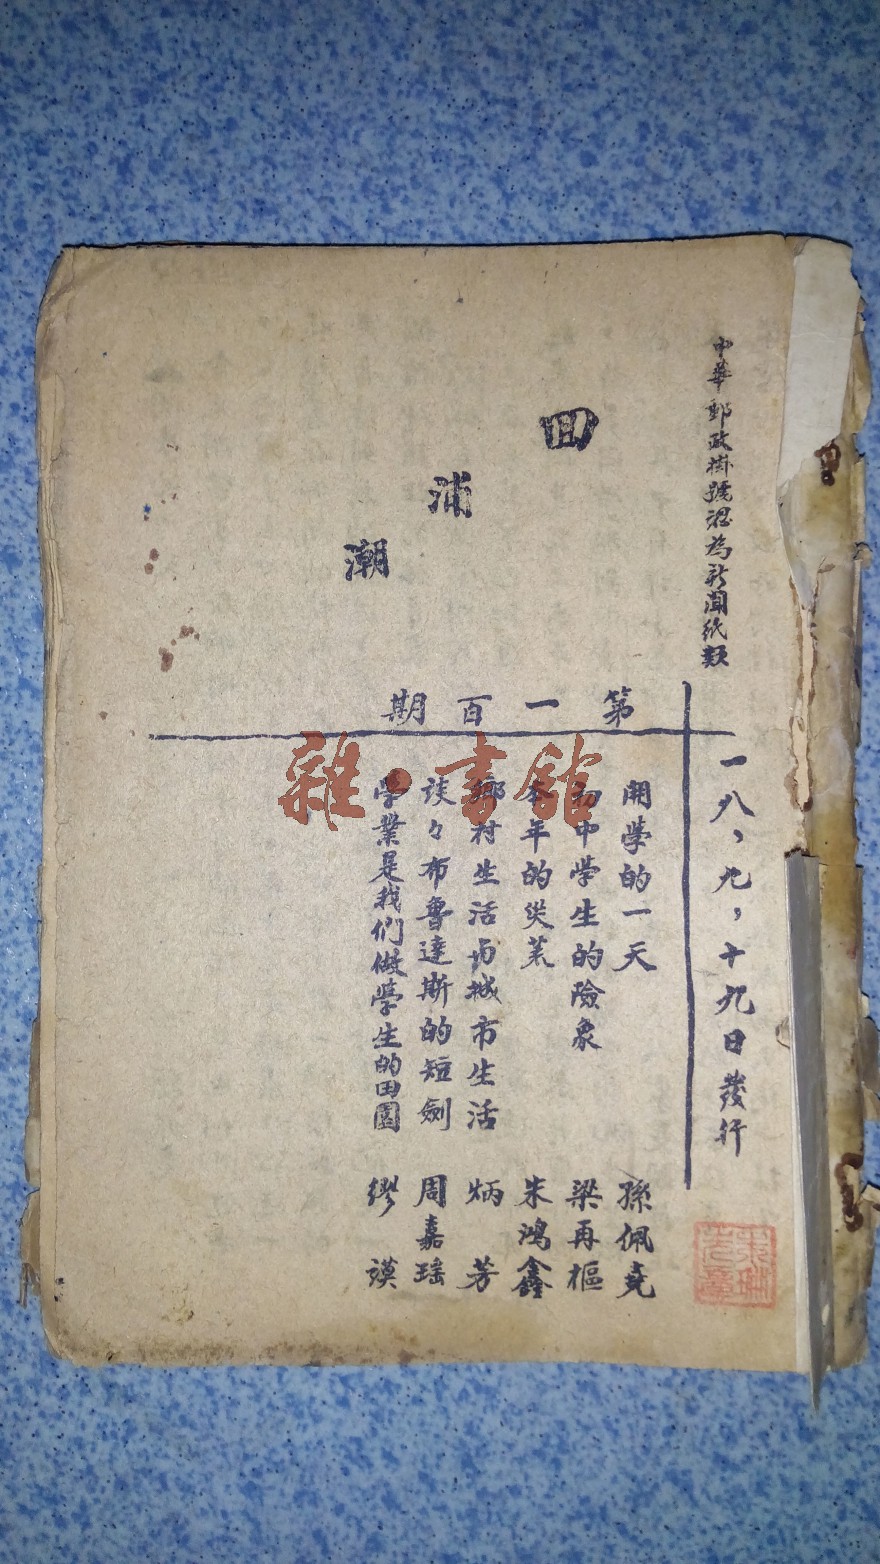 中華郵政掛號認為新聞紙類
回浦潮
第一百期
一八，九，十九日發行
開學的一天　孫佩堯
初中學生的險象　梁再樞
本年的災荒　朱鴻鑫
鄉村生活与城市生活　炳芳
談々布魯達斯的短劍　周嘉瑶
學業是我們做學生的田園　繆謨
雜·書館